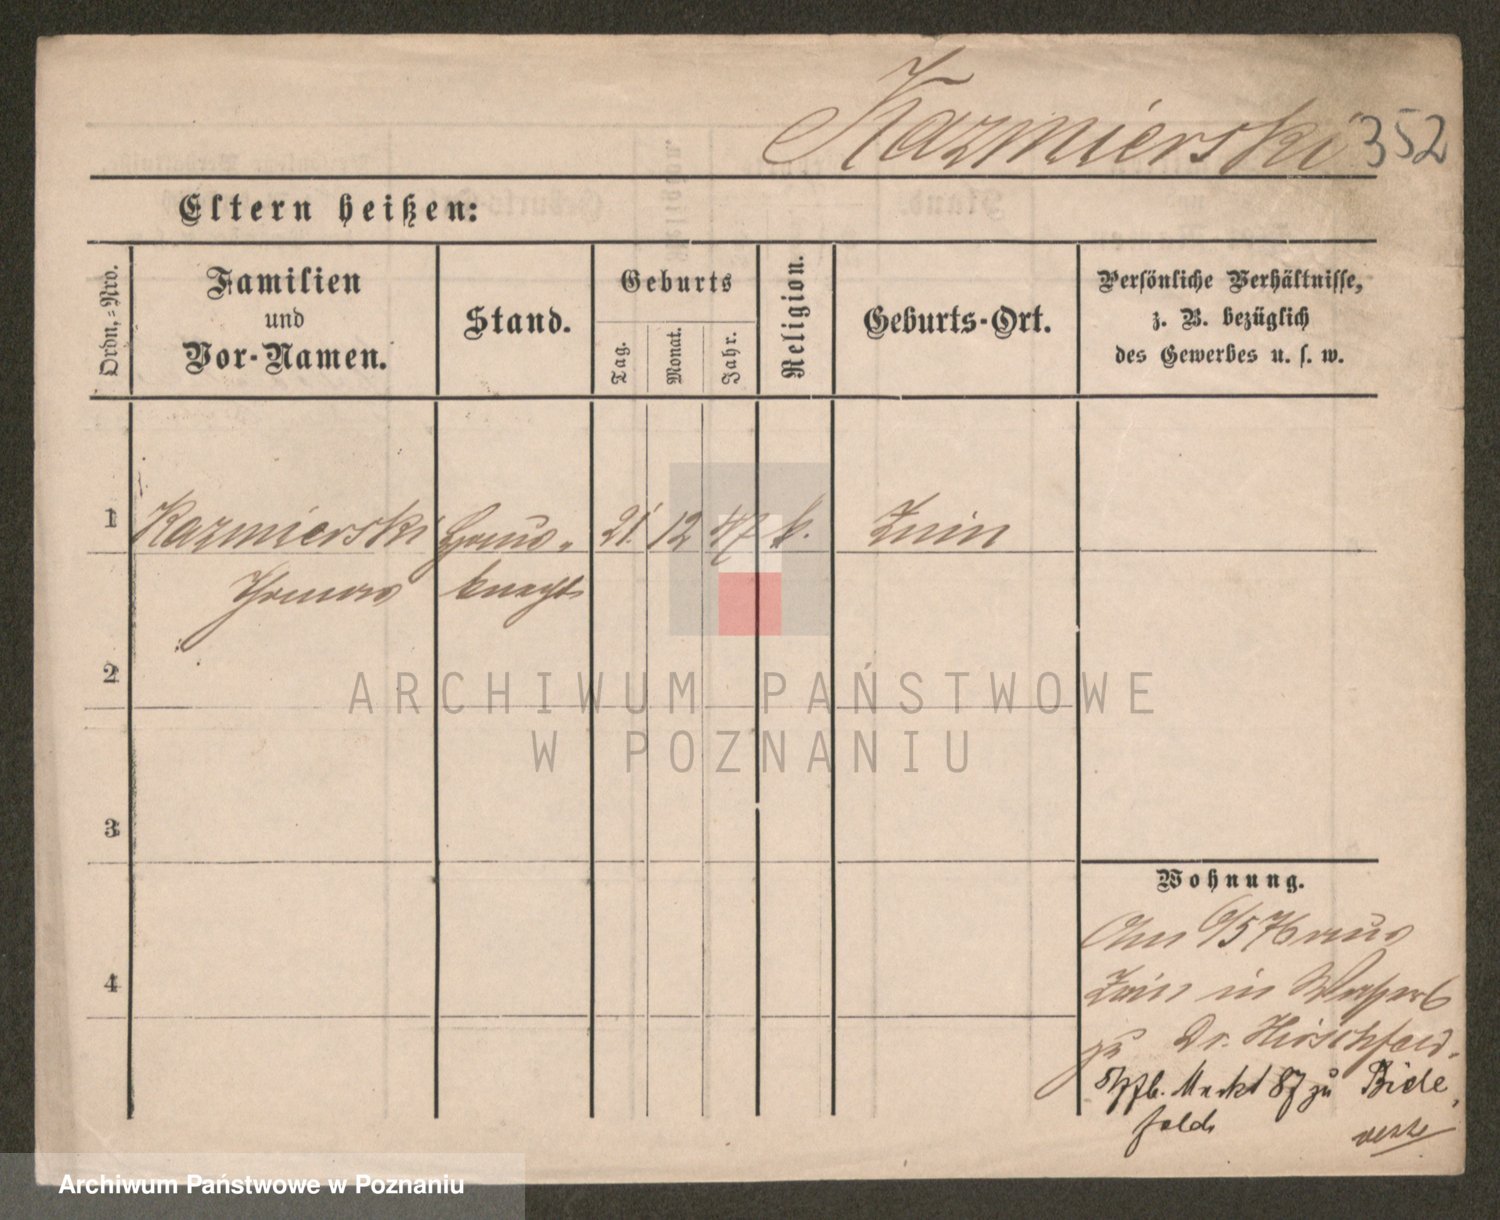 Kazmierski 352
Eltern heißen:
Ordn.-Nro.
Familien
und
Vor-Namen.
Stand.
Geburts
Tag.
Monat.
Jahr.
Religion.
Geburts-Ort.
Persönliche Verhältnisse,
z. B. bezüglich
des Gewerbes u. s. w.
1 Kazmierski Haus- 21 12 47 k. Znin
Thomas knecht
2
3
4
Wohnung.
Am 6/5 76 aus
Znin in
zu Dr. Hirschfeld.
Markt 87 zu Biele
feld
ARCHIWUM PAŃSTWOWE
W POZNANIU
Archiwum Państwowe w Poznaniu